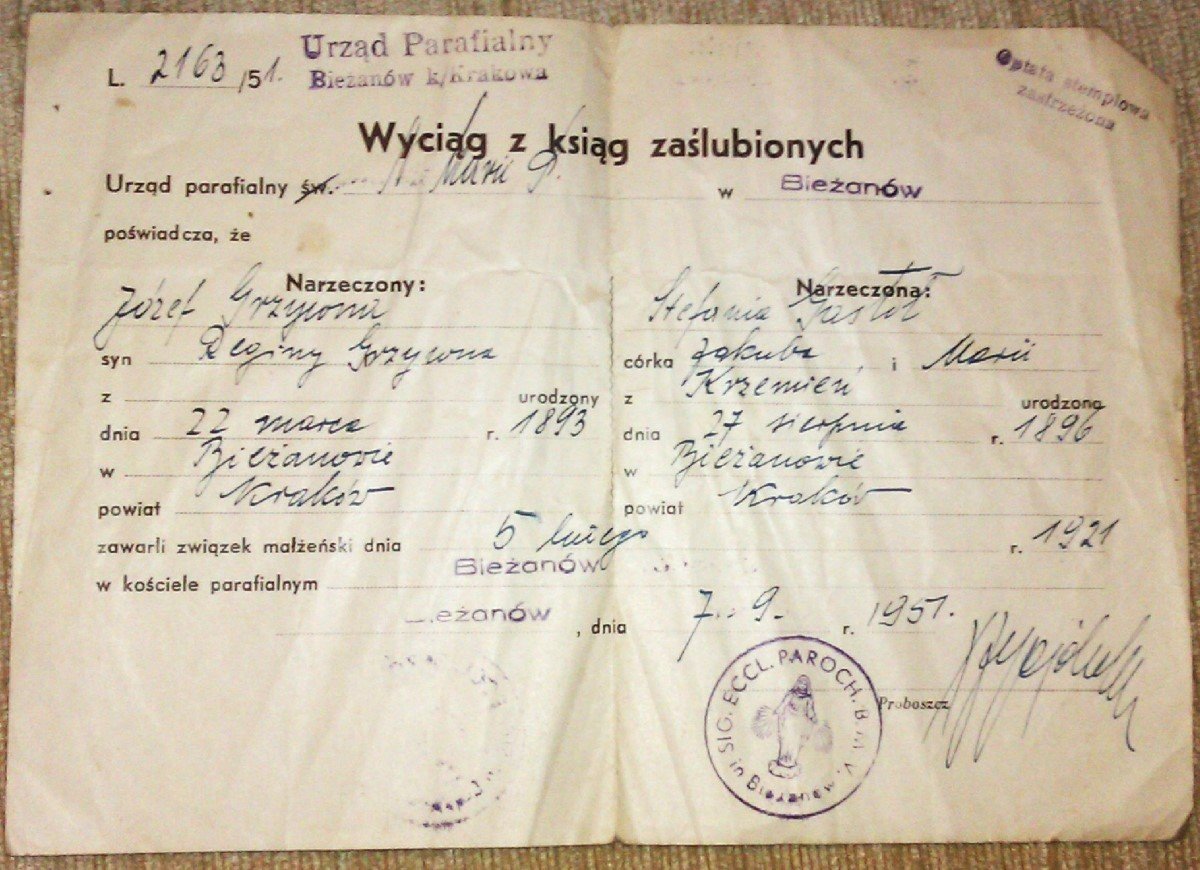 L. 2163/51.
Urząd Parafialny
Bieżanów k/Krakowa
Opłata stemplowa
zastrzeżona
Wyciąg z ksiąg zaślubionych
Urząd parafialny św. N. Marii P. w Bieżanów
poświadcza, że
Narzeczony:
Józef Grzywna
syn Reginy Grzywna
z urodzony
dnia 22 marca r. 1893
w Bieżanowie
powiat Kraków
Narzeczona:
Stefania Gastoł
córka Jakuba i Marii
Krzemień
z urodzona
dnia 27 sierpnia r. 1896
w Bieżanowie
powiat Kraków
zawarli związek małżeński dnia 5 lutego r. 1921
w kościele parafialnym Bieżanów
Bieżanów, dnia 7. 9. r. 1951.
Proboszcz
SIG. ECCL. PAROCH. B.M.V. in